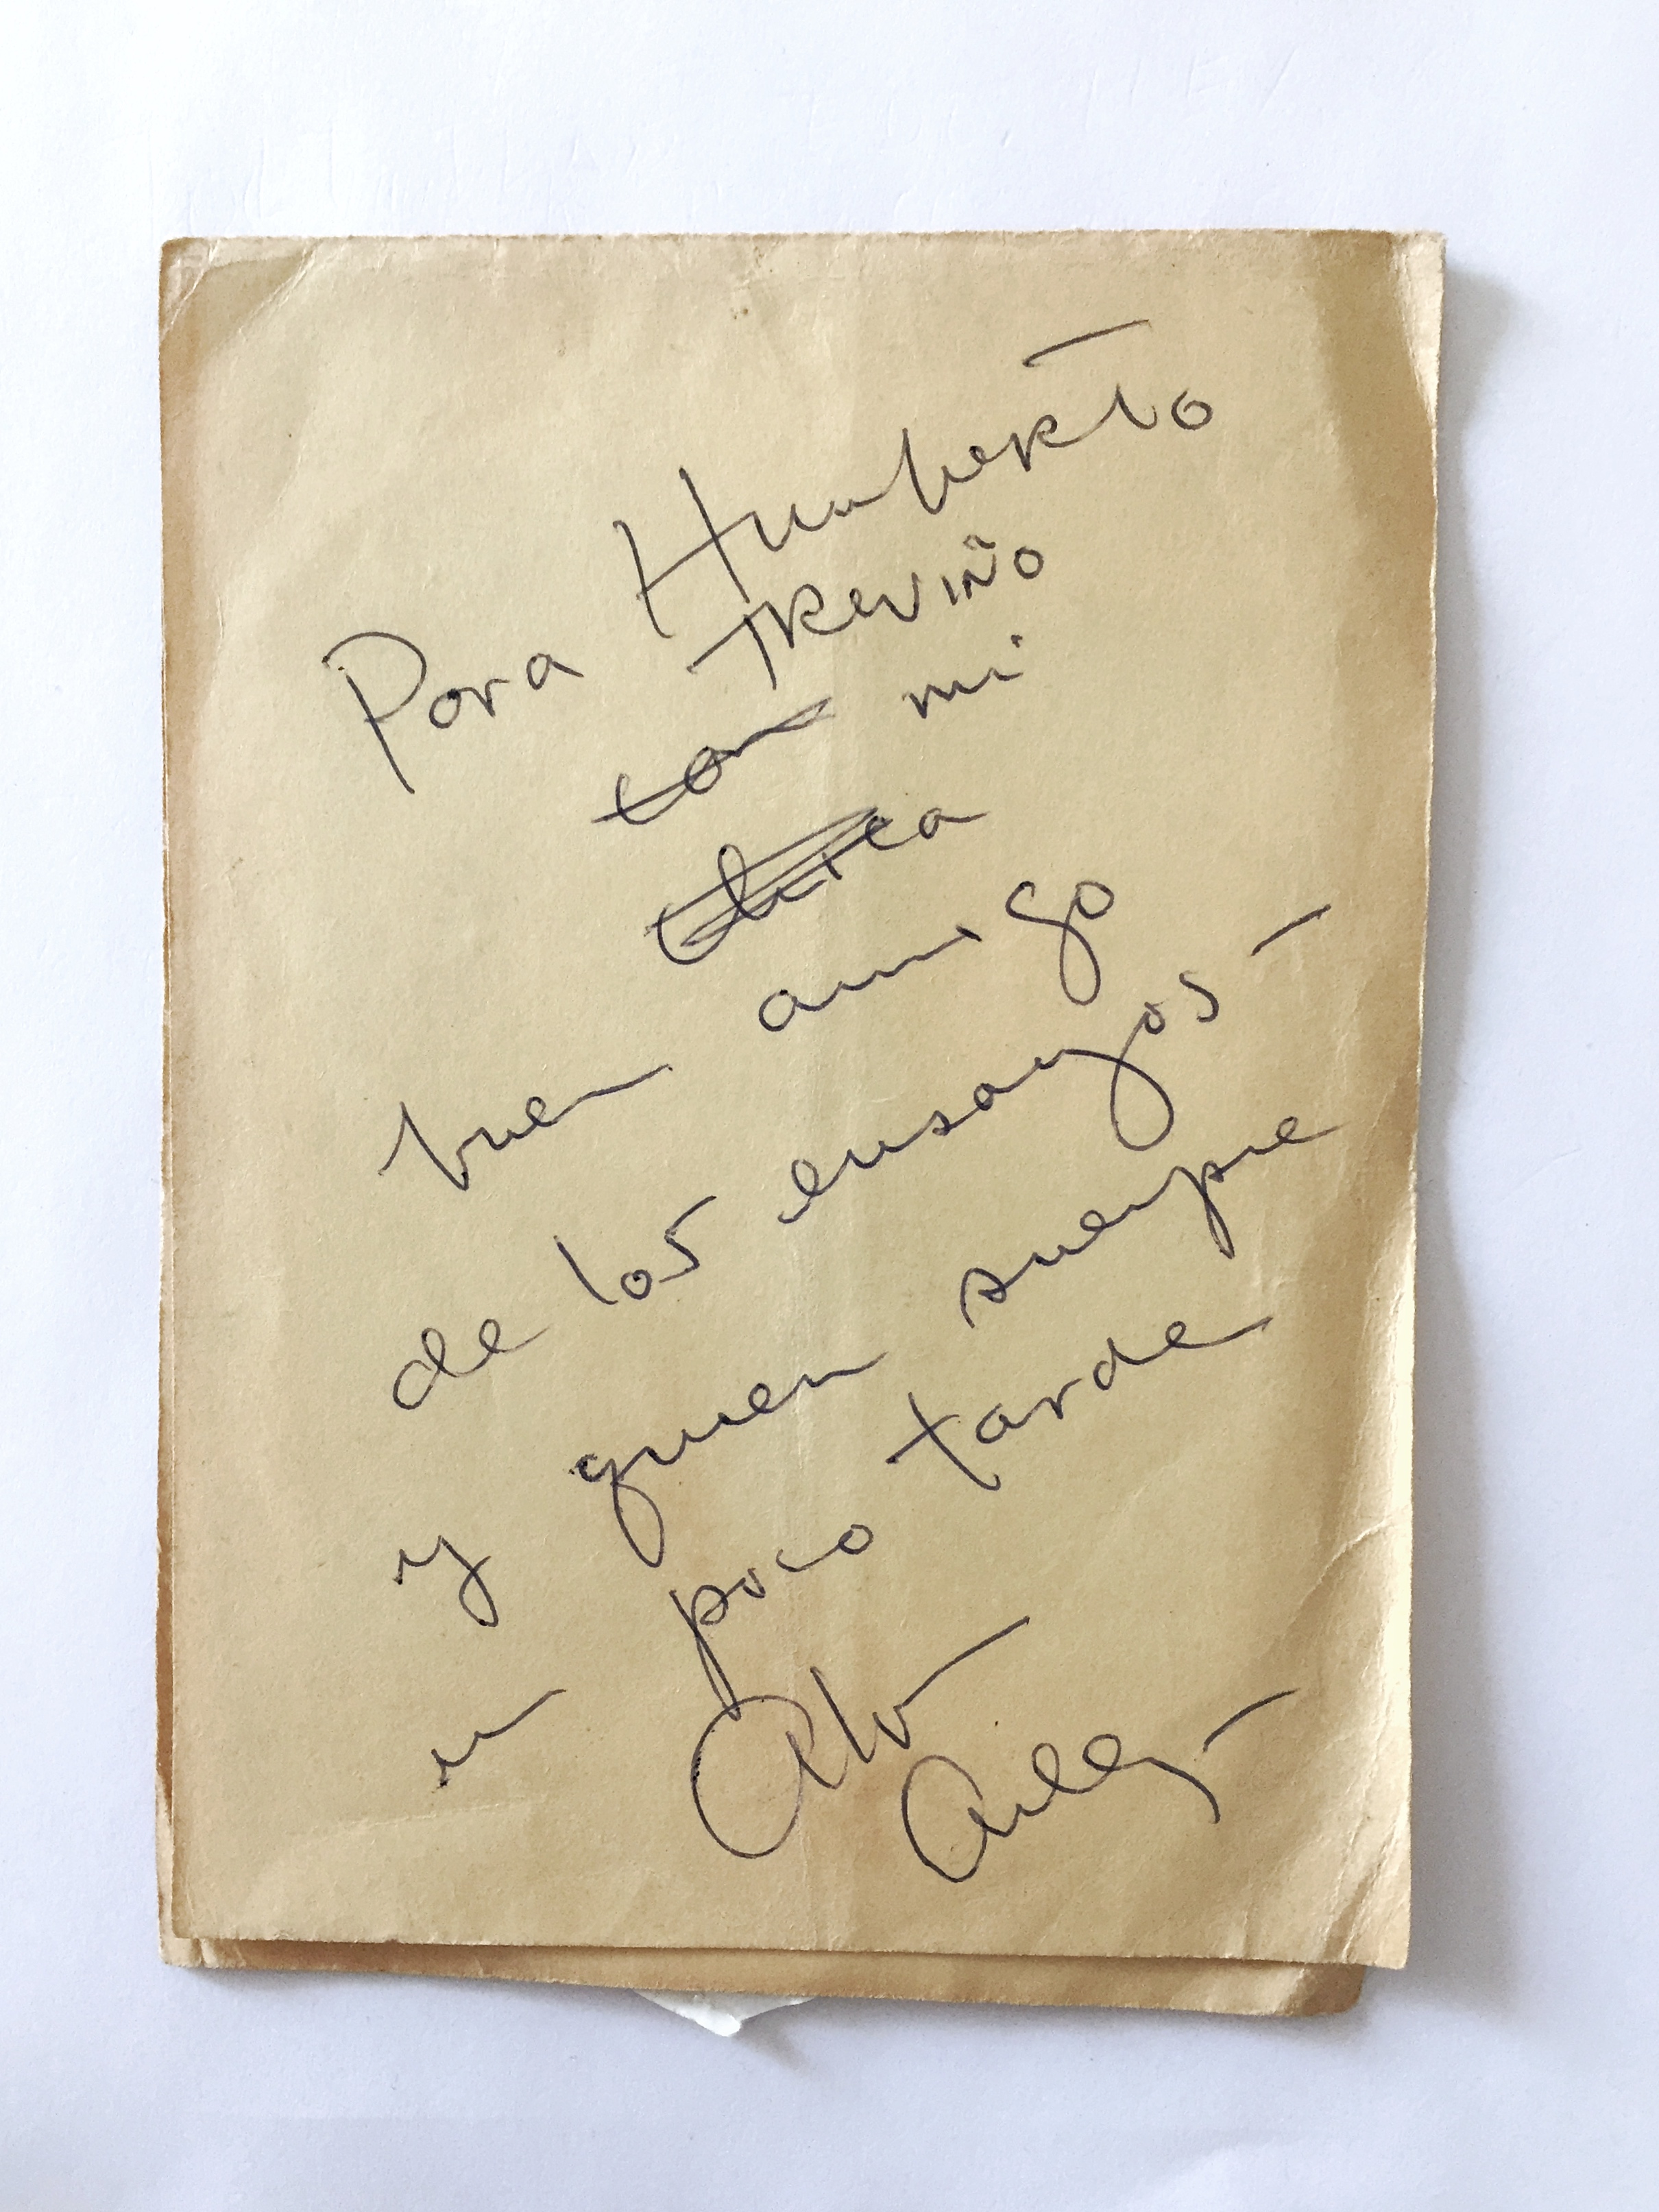 Para Humberto
TREVIÑO
con mi
buen amigo
de los ensayos —
y quien siempre
un poco tarde